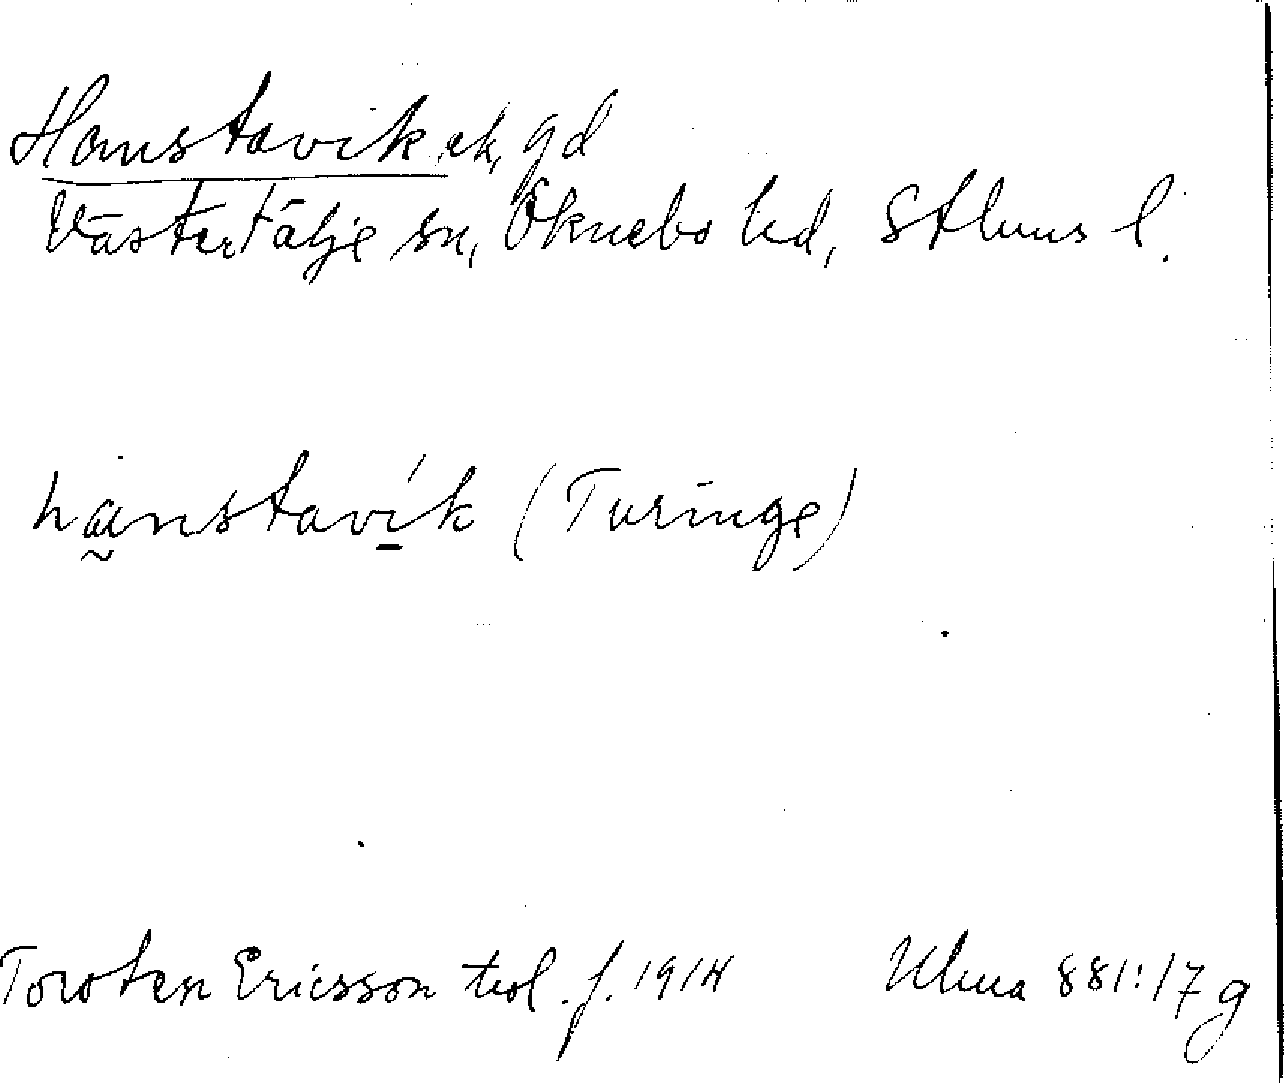 Hanstavik, ek, gd
Västertälje sn, Öknebo hd, Sthlms l.
hanstavík (Turinge)
Torsten Ericsson trol. f. 1914 Ulma 881:17 g